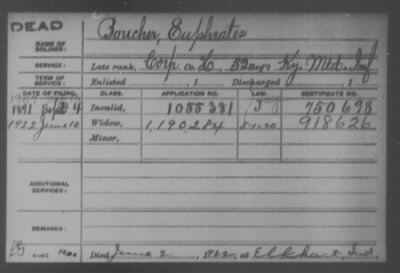 DEAD
NAME OF SOLDIER: Boucher, Euphrates
SERVICE: Late rank, Corp Co. H, 52 Reg't Ky. Mtd. Inf
TERM OF SERVICE: Enlisted , 1 Discharged , 1
DATE OF FILING. CLASS. APPLICATION NO. LAW. CERTIFICATE NO.
1891 Sept 4 Invalid, 1055381 750698
1922 June 10 Widow, 1190284 5-1-20 918626
Minor,
ADDITIONAL SERVICES:
REMARKS:
Died June 2, 1922, at Elkhart, Ind.